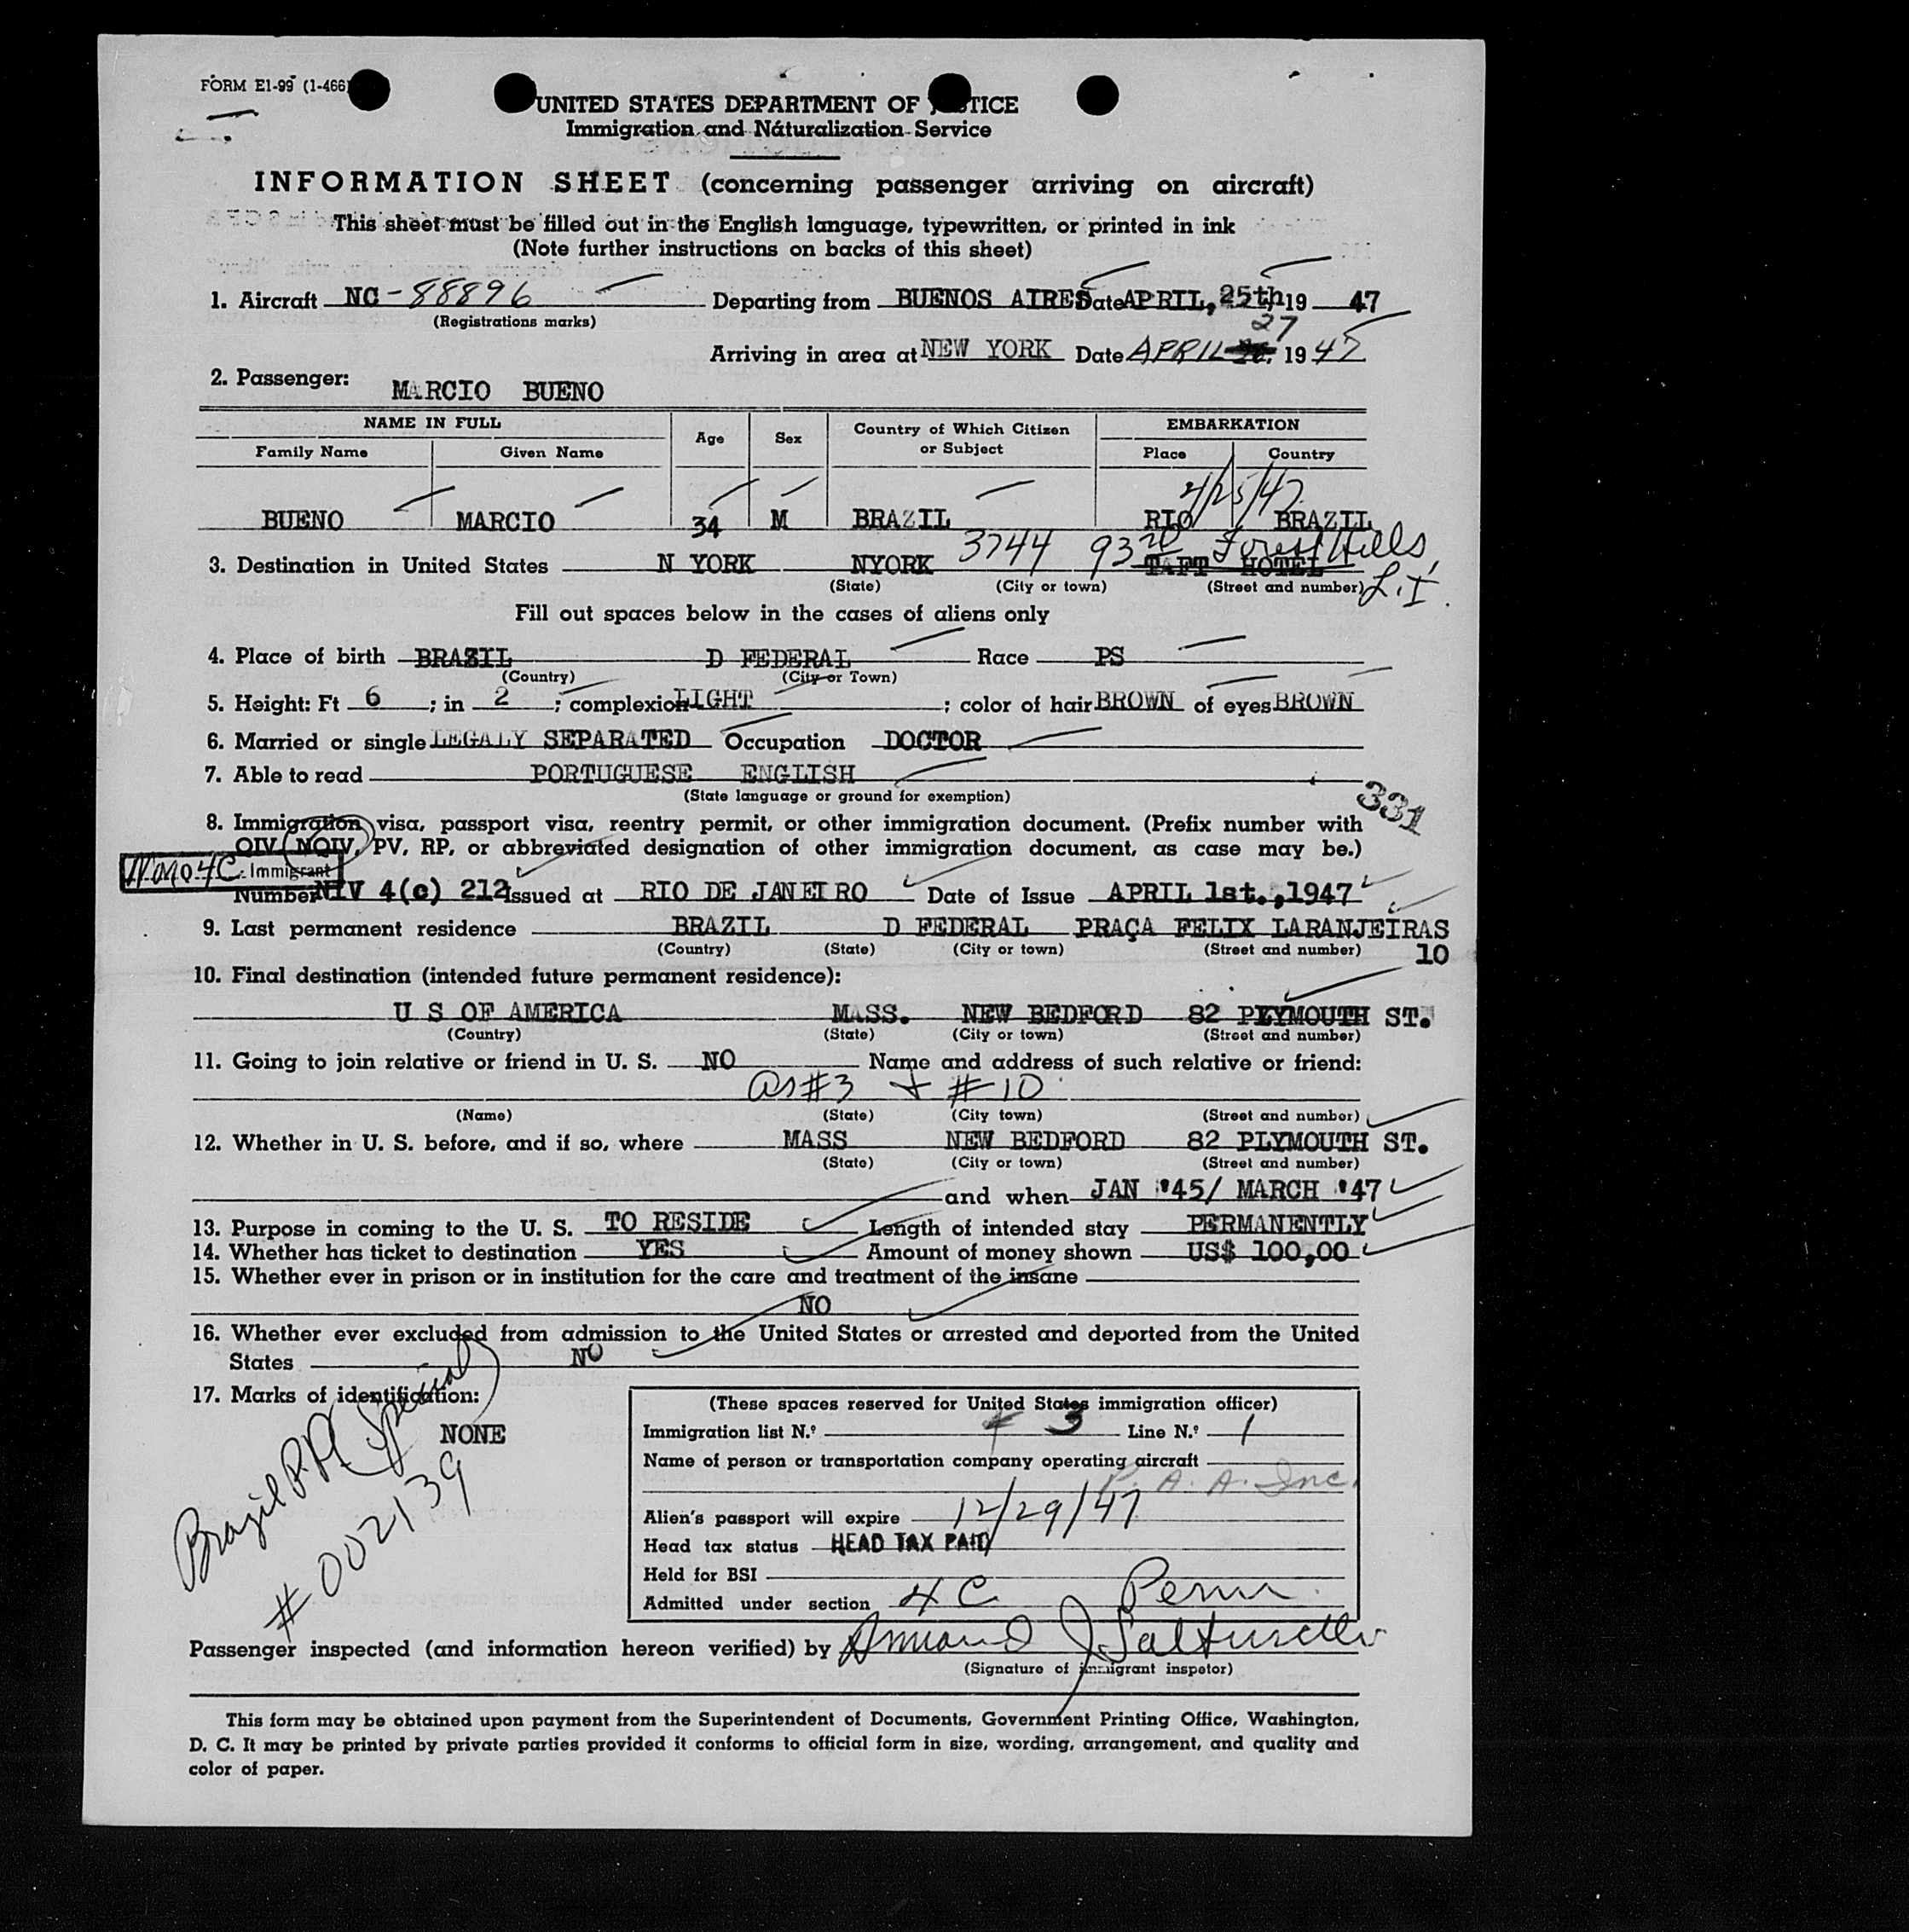 FORM E1-99 (1-466)
UNITED STATES DEPARTMENT OF JUSTICE
Immigration and Naturalization Service
INFORMATION SHEET (concerning passenger arriving on aircraft)
This sheet must be filled out in the English language, typewritten, or printed in ink
(Note further instructions on backs of this sheet)
1. Aircraft NC-88896 Departing from BUENOS AIRES Date APRIL, 25th 19 47
(Registrations marks)
27
Arriving in area at NEW YORK Date APRIL 1947
2. Passenger: MARCIO BUENO
NAME IN FULL Age Sex Country of Which Citizen or Subject EMBARKATION
Family Name Given Name Place Country
4/25/47
BUENO MARCIO 34 M BRAZIL RIO BRAZIL
3. Destination in United States N YORK NYORK 3744 93rd Forest Hills, L.I. TAFT HOTEL
(State) (City or town) (Street and number)
Fill out spaces below in the cases of aliens only
4. Place of birth BRASIL D FEDERAL Race PS
(Country) (City or Town)
5. Height: Ft 6 ; in 2 ; complexion LIGHT ; color of hair BROWN of eyes BROWN
6. Married or single LEGALY SEPARATED Occupation DOCTOR
7. Able to read PORTUGUESE ENGLISH
(State language or ground for exemption)
331
8. Immigration visa, passport visa, reentry permit, or other immigration document. (Prefix number with
QIV, NQIV, PV, RP, or abbreviated designation of other immigration document, as case may be.)
Immigrant
Number NIV 4(c) 212 Issued at RIO DE JANEIRO Date of Issue APRIL 1st.,1947
9. Last permanent residence BRAZIL D FEDERAL PRAÇA FELIX LARANJEIRAS
(Country) (State) (City or town) (Street and number) 10
10. Final destination (intended future permanent residence):
U S OF AMERICA MASS. NEW BEDFORD 82 PLYMOUTH ST.
(Country) (State) (City or town) (Street and number)
11. Going to join relative or friend in U. S. NO Name and address of such relative or friend:
as #3 + #10
(Name) (State) (City town) (Street and number)
12. Whether in U. S. before, and if so, where MASS NEW BEDFORD 82 PLYMOUTH ST.
(State) (City or town) (Street and number)
and when JAN '45/ MARCH '47
13. Purpose in coming to the U. S. TO RESIDE Length of intended stay PERMANENTLY
14. Whether has ticket to destination YES Amount of money shown US$ 100,00
15. Whether ever in prison or in institution for the care and treatment of the insane
NO
16. Whether ever excluded from admission to the United States or arrested and deported from the United
States NO
17. Marks of identification:
NONE
Brazil P.P. Special
# 002139
(These spaces reserved for United States immigration officer)
Immigration list N.º 3 Line N.º 1
Name of person or transportation company operating aircraft
P. A. A. Inc.
Alien's passport will expire 12/29/47
Head tax status HEAD TAX PAID
Held for BSI
Admitted under section 4 C Perm
Passenger inspected (and information hereon verified) by
(Signature of immigrant inspetor)
This form may be obtained upon payment from the Superintendent of Documents, Government Printing Office, Washington,
D. C. It may be printed by private parties provided it conforms to official form in size, wording, arrangement, and quality and
color of paper.